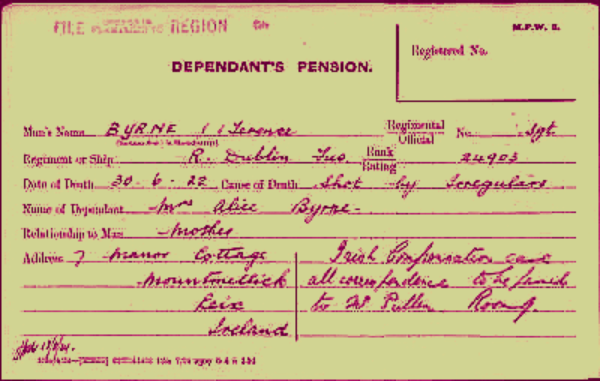 FILE REGION
M.P.W. 2.
Registered No.
DEPENDANT'S PENSION.
Man's Name BYRNE Terence Regimental Official No. Sgt
Regiment or Ship R. Dublin Fus Rank Rating 24903
Date of Death 30-6-22 Cause of Death Shot by Irregulars
Name of Dependant Mrs Alice Byrne
Relationship to Man Mother
Address 7 Manor Cottage
Mountmellick
Leix
Ireland
Irish Compensation case
all correspondence to be
to Mr Pullen Room